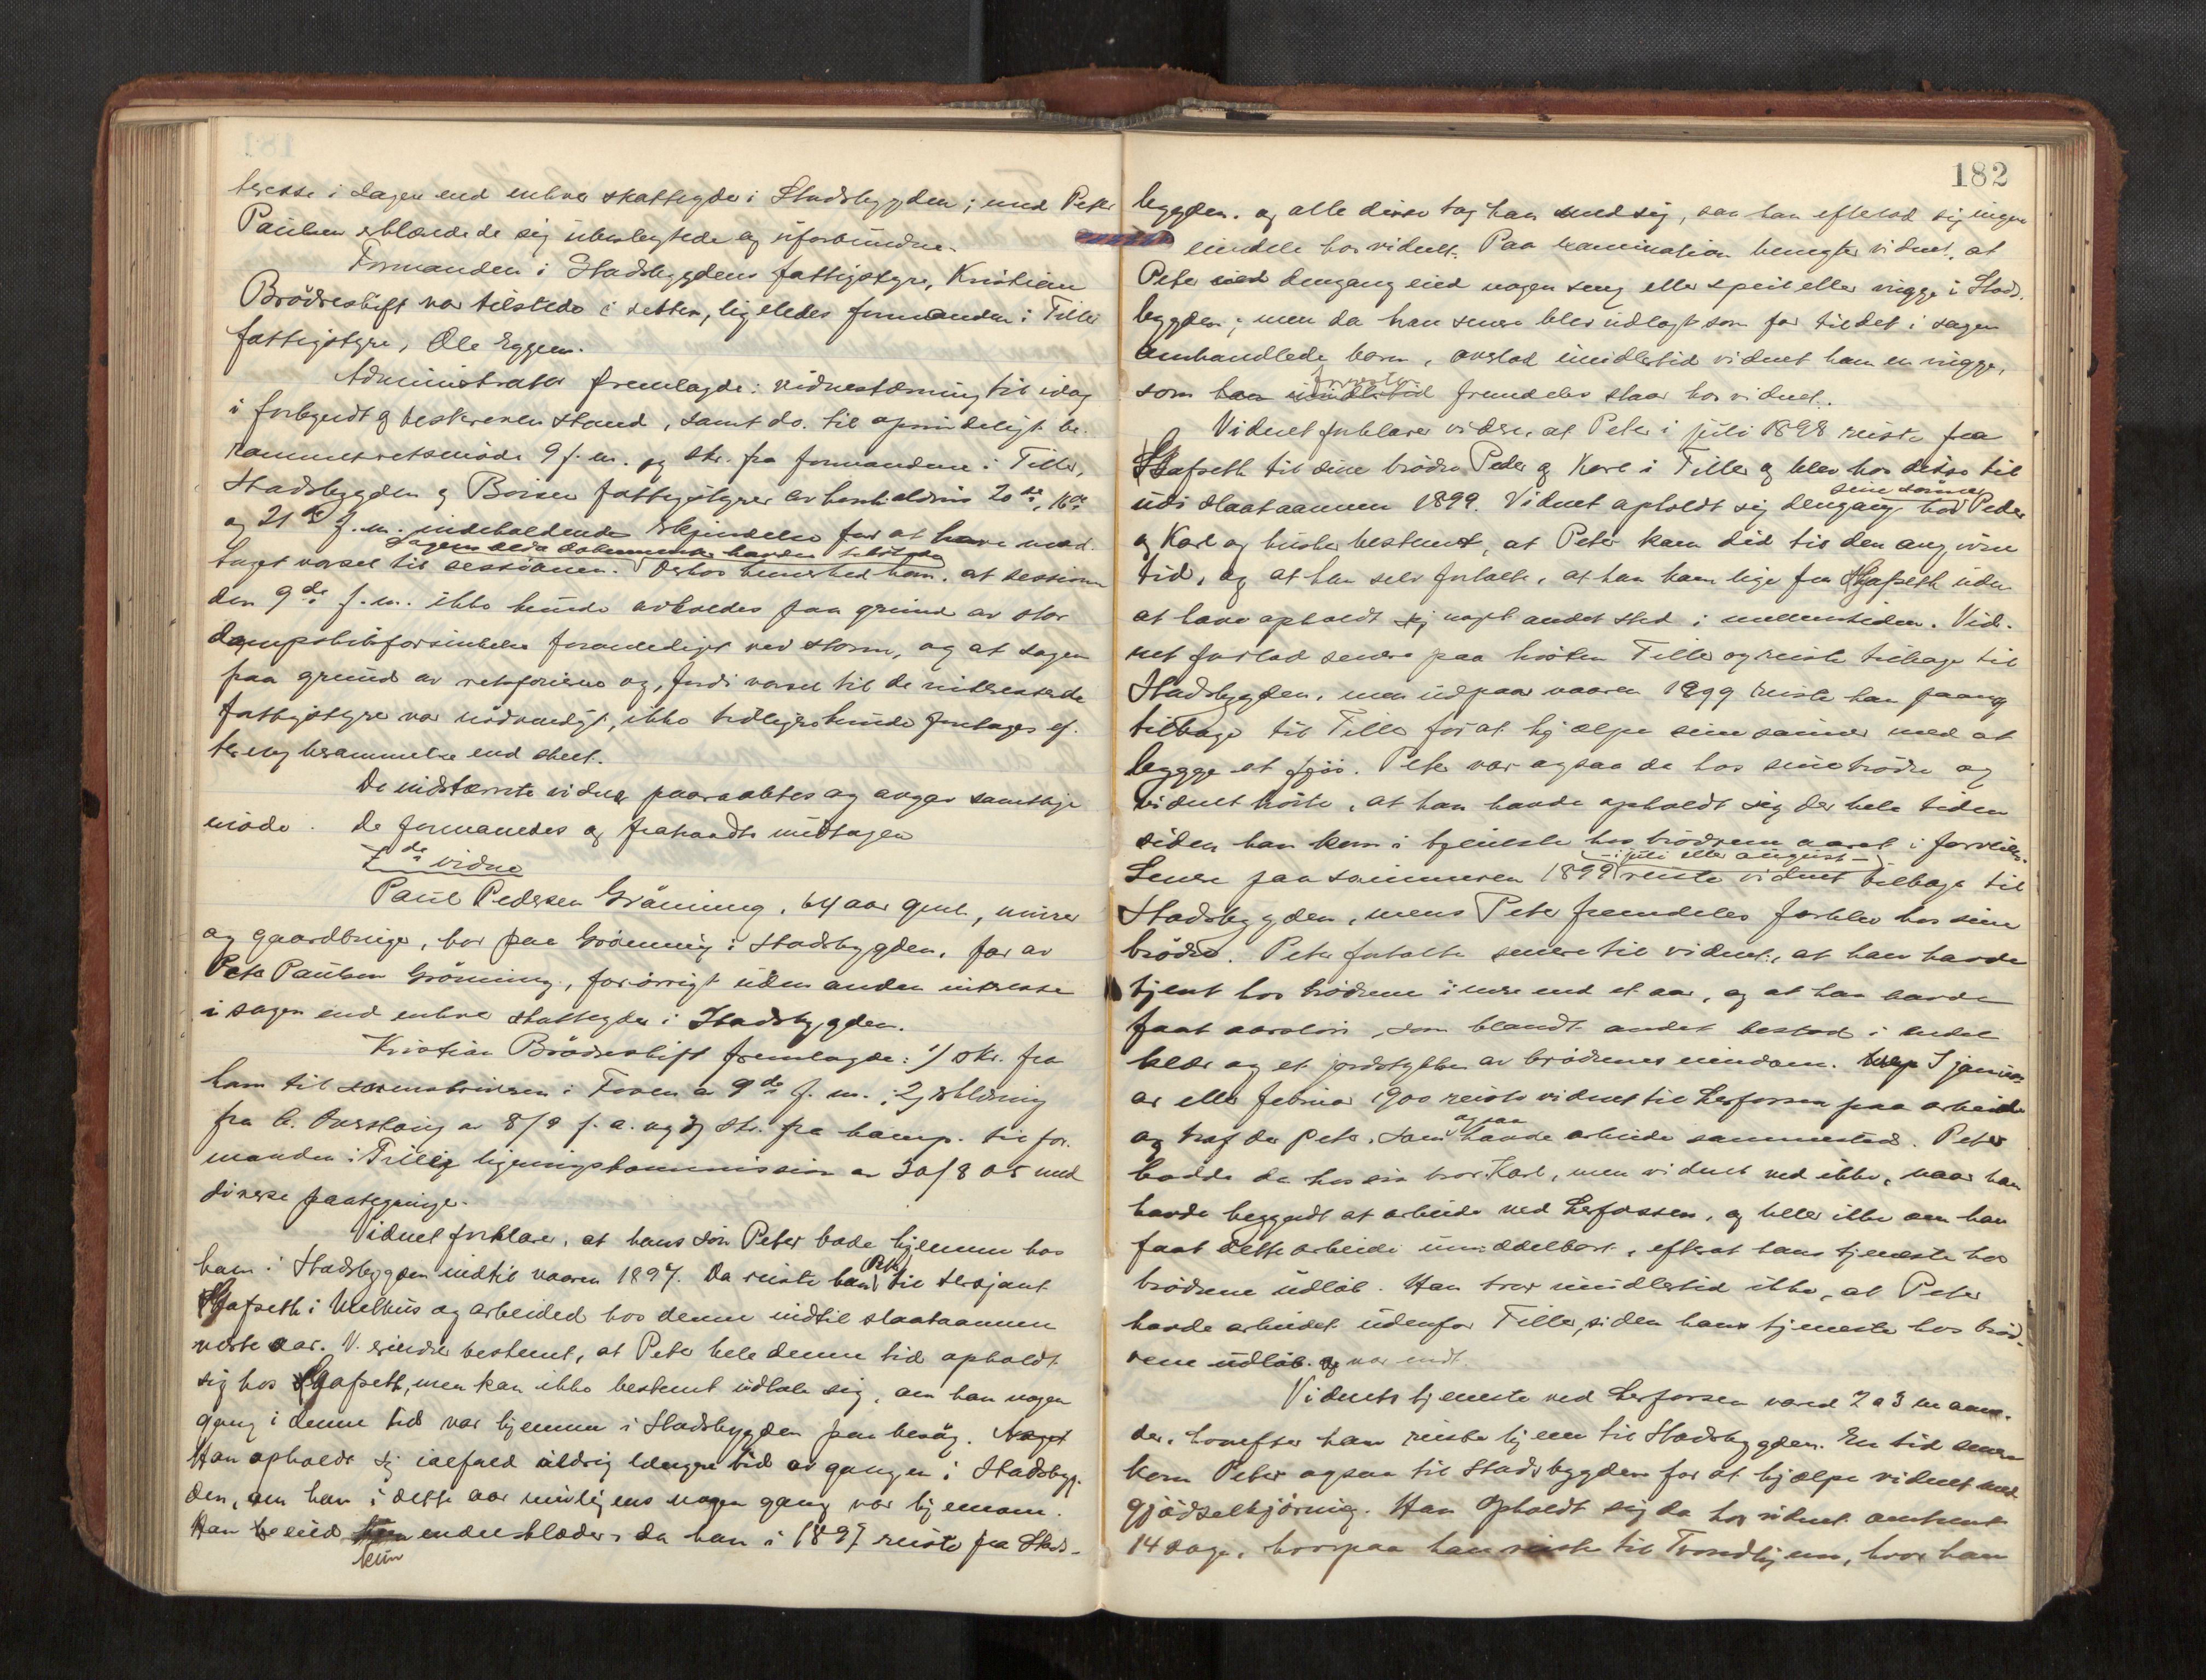 teresse i sagen end enhver skatteyder i Stadsbygden; med Peter
Paulsen erklærede de sig ubeslegtede og uforbundne.
Formanden i Stadsbygdens fattigstyre, Kristian
Brödreskift var tilstede i retten, ligeledes formanden i Tiller
fattigstyre, Ole Eggen.
Administrator fremlagde: vidnestævning til idag
i forkyndt og beskreven stand, samt do. til oprindeligt be-
rammet retsmöde 9 f. m. og skr. fra formandene i Tiller,
Stadsbygden og Börsen fattigstyrer av henholdsvis 20de, 16de
og 21de f. m. indeholdende erkjendelse for at have mod-
taget varsel til sessionen. Derhos bemerked han, at sessionen
den 9de f. m. ikke kunde avholdes paa grund av stor
dampskibsforsinkelse foranlediget ved storm, og at sagen
paa grund av retsferierne og, fordi varsel til de interesserede
fattigstyre var nödvendigt, ikke tidligere kunde foretages ef-
ter ny berammelse end skeet.
De indstævnte vidner paaraabtes og avgav samtlige
möde. De formanedes og fratraadte undtagen
7de vidne
Paul Pedersen Grönning, 64 aar gml, murer
og gaardbruger, bor paa Grönning i Stadsbygden, far av
Peter Paulsen Grönning, forövrigt uden anden interesse
i sagen end enhver skatteyder i Stadsbygden.
Kristian Brödreskift fremlagde: 1) skr. fra
ham til sorenskriveren i Fosen a 9de f. m.; 2) erklæring
fra av 8/9 f. a. og 3) skr. fra til for-
manden i ligningskommission av 30/8 05 med
diverse paategninger.
Vidnet forklarer, at hans sön Peter bode hjemme hos
ham i Stadsbygden indtil vaaren 1897. Da reiste han Peter til sersjant
Skjafseth i Melhus og arbeided hos denne indtil slaataannen
neste aar. V. erindrer bestemt, at Peter hele denne tid opholdt
sig hos Skjafseth, men kan ikke bestemt udtale sig, om han nogen
gang i denne tid var hjemme i Stadsbygden paa besög. Noget
Han opholdt sig ialfald aldrig længere tid ad gangen i Stadsbyg-
den, om han i dette aar muligens nogen gang var hjemom.
Han eied kun endel klæder, da han i 1897 reiste fra Stads-
182
bygden. og alle disse tog han med sig, saa han efterlod sig ingen
eiendele hos vidnet. Paa examination benegter vidnet, at
Peter dengang eied nogen seng eller speil eller vugge i Stads-
bygden; men da han senere blev udlagt som far til det i sagen
omhandlede barn, avstod imidlertid vidnet ham en vugge,
som fremdeles staar hos vidnet.
Vidnet forklarer videre, at Peter i juli 1898 reiste fra
Skjafseth til sine brödre Peder og Karl i Tiller og blev hos disse til
udi slaataannen 1899. Vidnet opholdt sig dengang hos sine sönner Peder
og Karl og husker bestemt, at Peter kom did til den angivne
tid, og at han selv fortalte, at han kom lige fra Skjafseth uden
at have opholdt sig noget andet sted i mellemtiden. Vid-
net forlod senere paa hösten Tiller og reiste tilbage til
Stadsbygden, men udpaa vaaren 1899 reiste han paany
tilbage til Tiller for at hjælpe sine sönner med at
bygge et fjös. Peter var ogsaa da hos sine brödre og
vidnet hörte, at han havde opholdt sig der hele tiden
siden han kom i tjeneste hos brödrene aaret i forveien.
Senere paa sommeren 1899 - i juli eller august - reiste vidnet tilbage til
Stadsbygden, mens Peter fremdeles forblev hos sine
brödre. Peter fortalte senere til vidnet, at han havde
tjent hos brödrene i mere end et aar, og at han havde
faat aarslön, som blandt andet bestod i endel
klær og et jordstykke av brödrenes eiendom. I janu-
ar eller februar 1900 reiste vidnet til Lerfossen paa arbeide
og traf der Peter, som ogsaa havde arbeide sammesteds. Peter
bodde da hos sin bror Karl, men vidnet ved ikke, naar han
havde begyndt at arbeide ved Lerfossen, og heller ikke om han
faat dette arbeide umiddelbart, efterat hans tjeneste hos
brödrene udlöb. Han tror imidlertid ikke, at Peter
havde arbeidet udenfor Tiller, siden hans tjeneste hos bröd-
rene udlöb. og var endt.
Vidnets tjeneste ved Lerfossen vared 2 a 3 maane-
der, hvorefter han reiste hjem til Stadsbygden. En tid senere
kom Peter ogsaa til Stadsbygden for at hjælpe vidnet med
gjödselkjöring. Han opholdt sig da hos vidnet omtrent
14 dage, hvorpaa han reiste til Trondhjem, hvor han